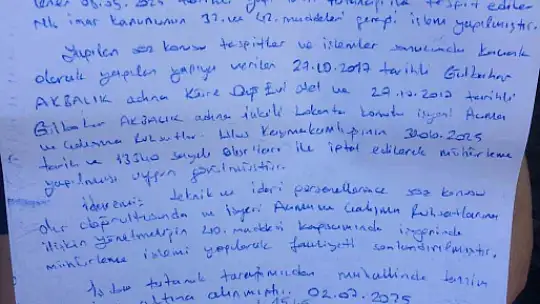 tespit edilen
İmar Kanununun 32. ve 42. maddeleri gereği işlem yapılmıştır.
Yapılan söz konusu tespitler ve işlemler sonucunda kaçak
olarak yapılan yapıya verilen 27.10.2017 tarihli Gülbahar
AKBALIK adına Küre Dağ Evi otel ve 27.12.2017 tarihli
Gülbahar AKBALIK adına içkili lokanta konulu işyeri Açma
ve Çalışma Ruhsatları. Ulus Kaymakamlığının 30.06.2025
tarih ve 13340 sayılı Olurları ile iptal edilerek mühürleme
yapılması uygun görülmüştür.
İdaremiz teknik ve idari personellerince söz konusu
olur doğrultusunda ve işyeri Açma ve Çalışma Ruhsatlarına
ilişkin yönetmeliğin maddesi kapsamında işyerinde
mühürleme işlemi yapılarak faaliyeti sonlandırılmıştır.
İş bu tutanak tarafımızdan mahallinde tanzim
altına alınmıştır. 02.07.2025